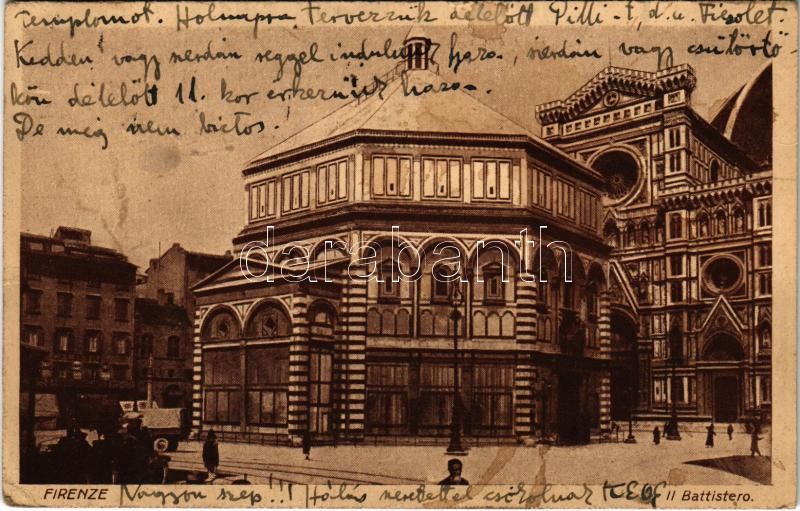 templomot. Holnapra tervezzük délelőtt Pitti-t, d.u. Fiesolet.
Kedden vagy szerdán reggel indulunk haza, szerdán vagy csütörtö-
kön délelőtt 11. kor érkezünk haza.
De még nem biztos!
darabanth.com
FIRENZE
Nagyon szép!!! Hálás szeretettel csókolnak
Il Battistero.